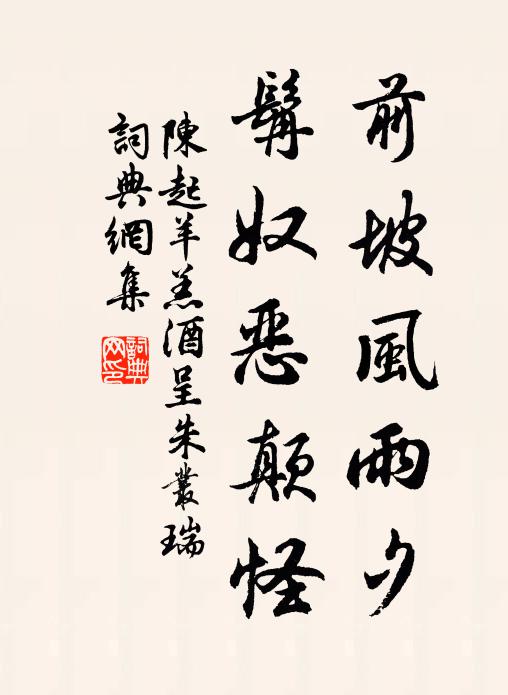 前坡風雨夕
髯奴恶顛怪
陳起羊羔酒呈朱叢瑞
詞典網集
詞典網印